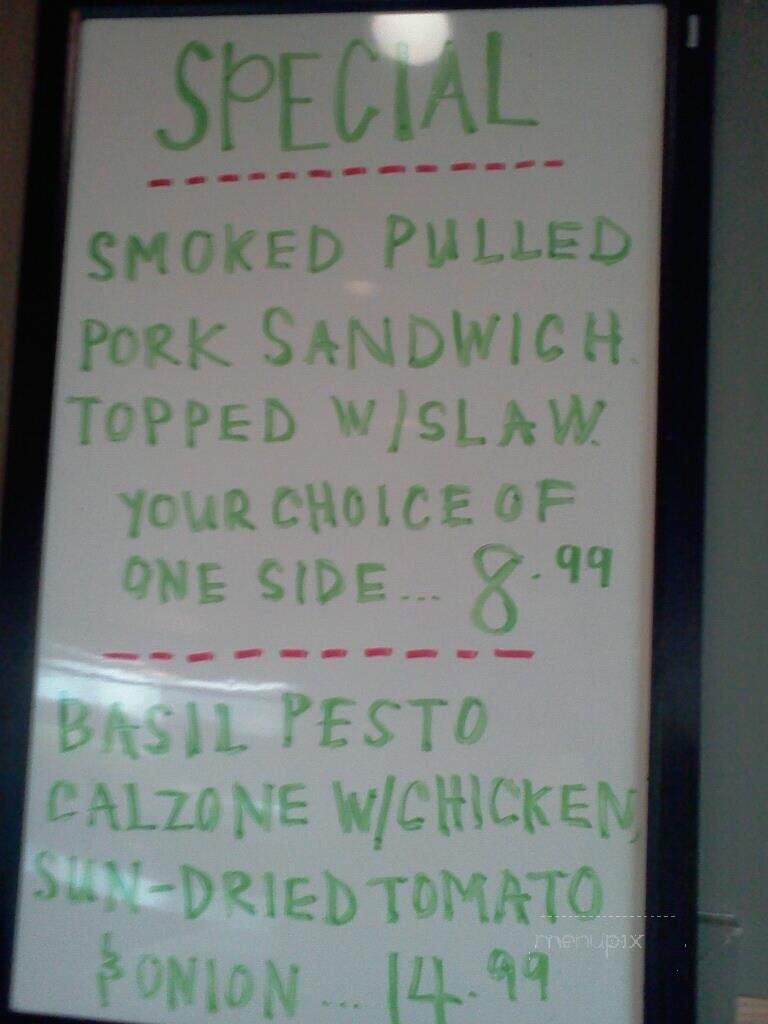 SPECIAL
SMOKED PULLED
PORK SANDWICH.
TOPPED W/SLAW.
YOUR CHOICE OF
ONE SIDE... 8.99
BASIL PESTO
CALZONE W/CHICKEN,
SUN-DRIED TOMATO
& ONION ... 14.99
menupix